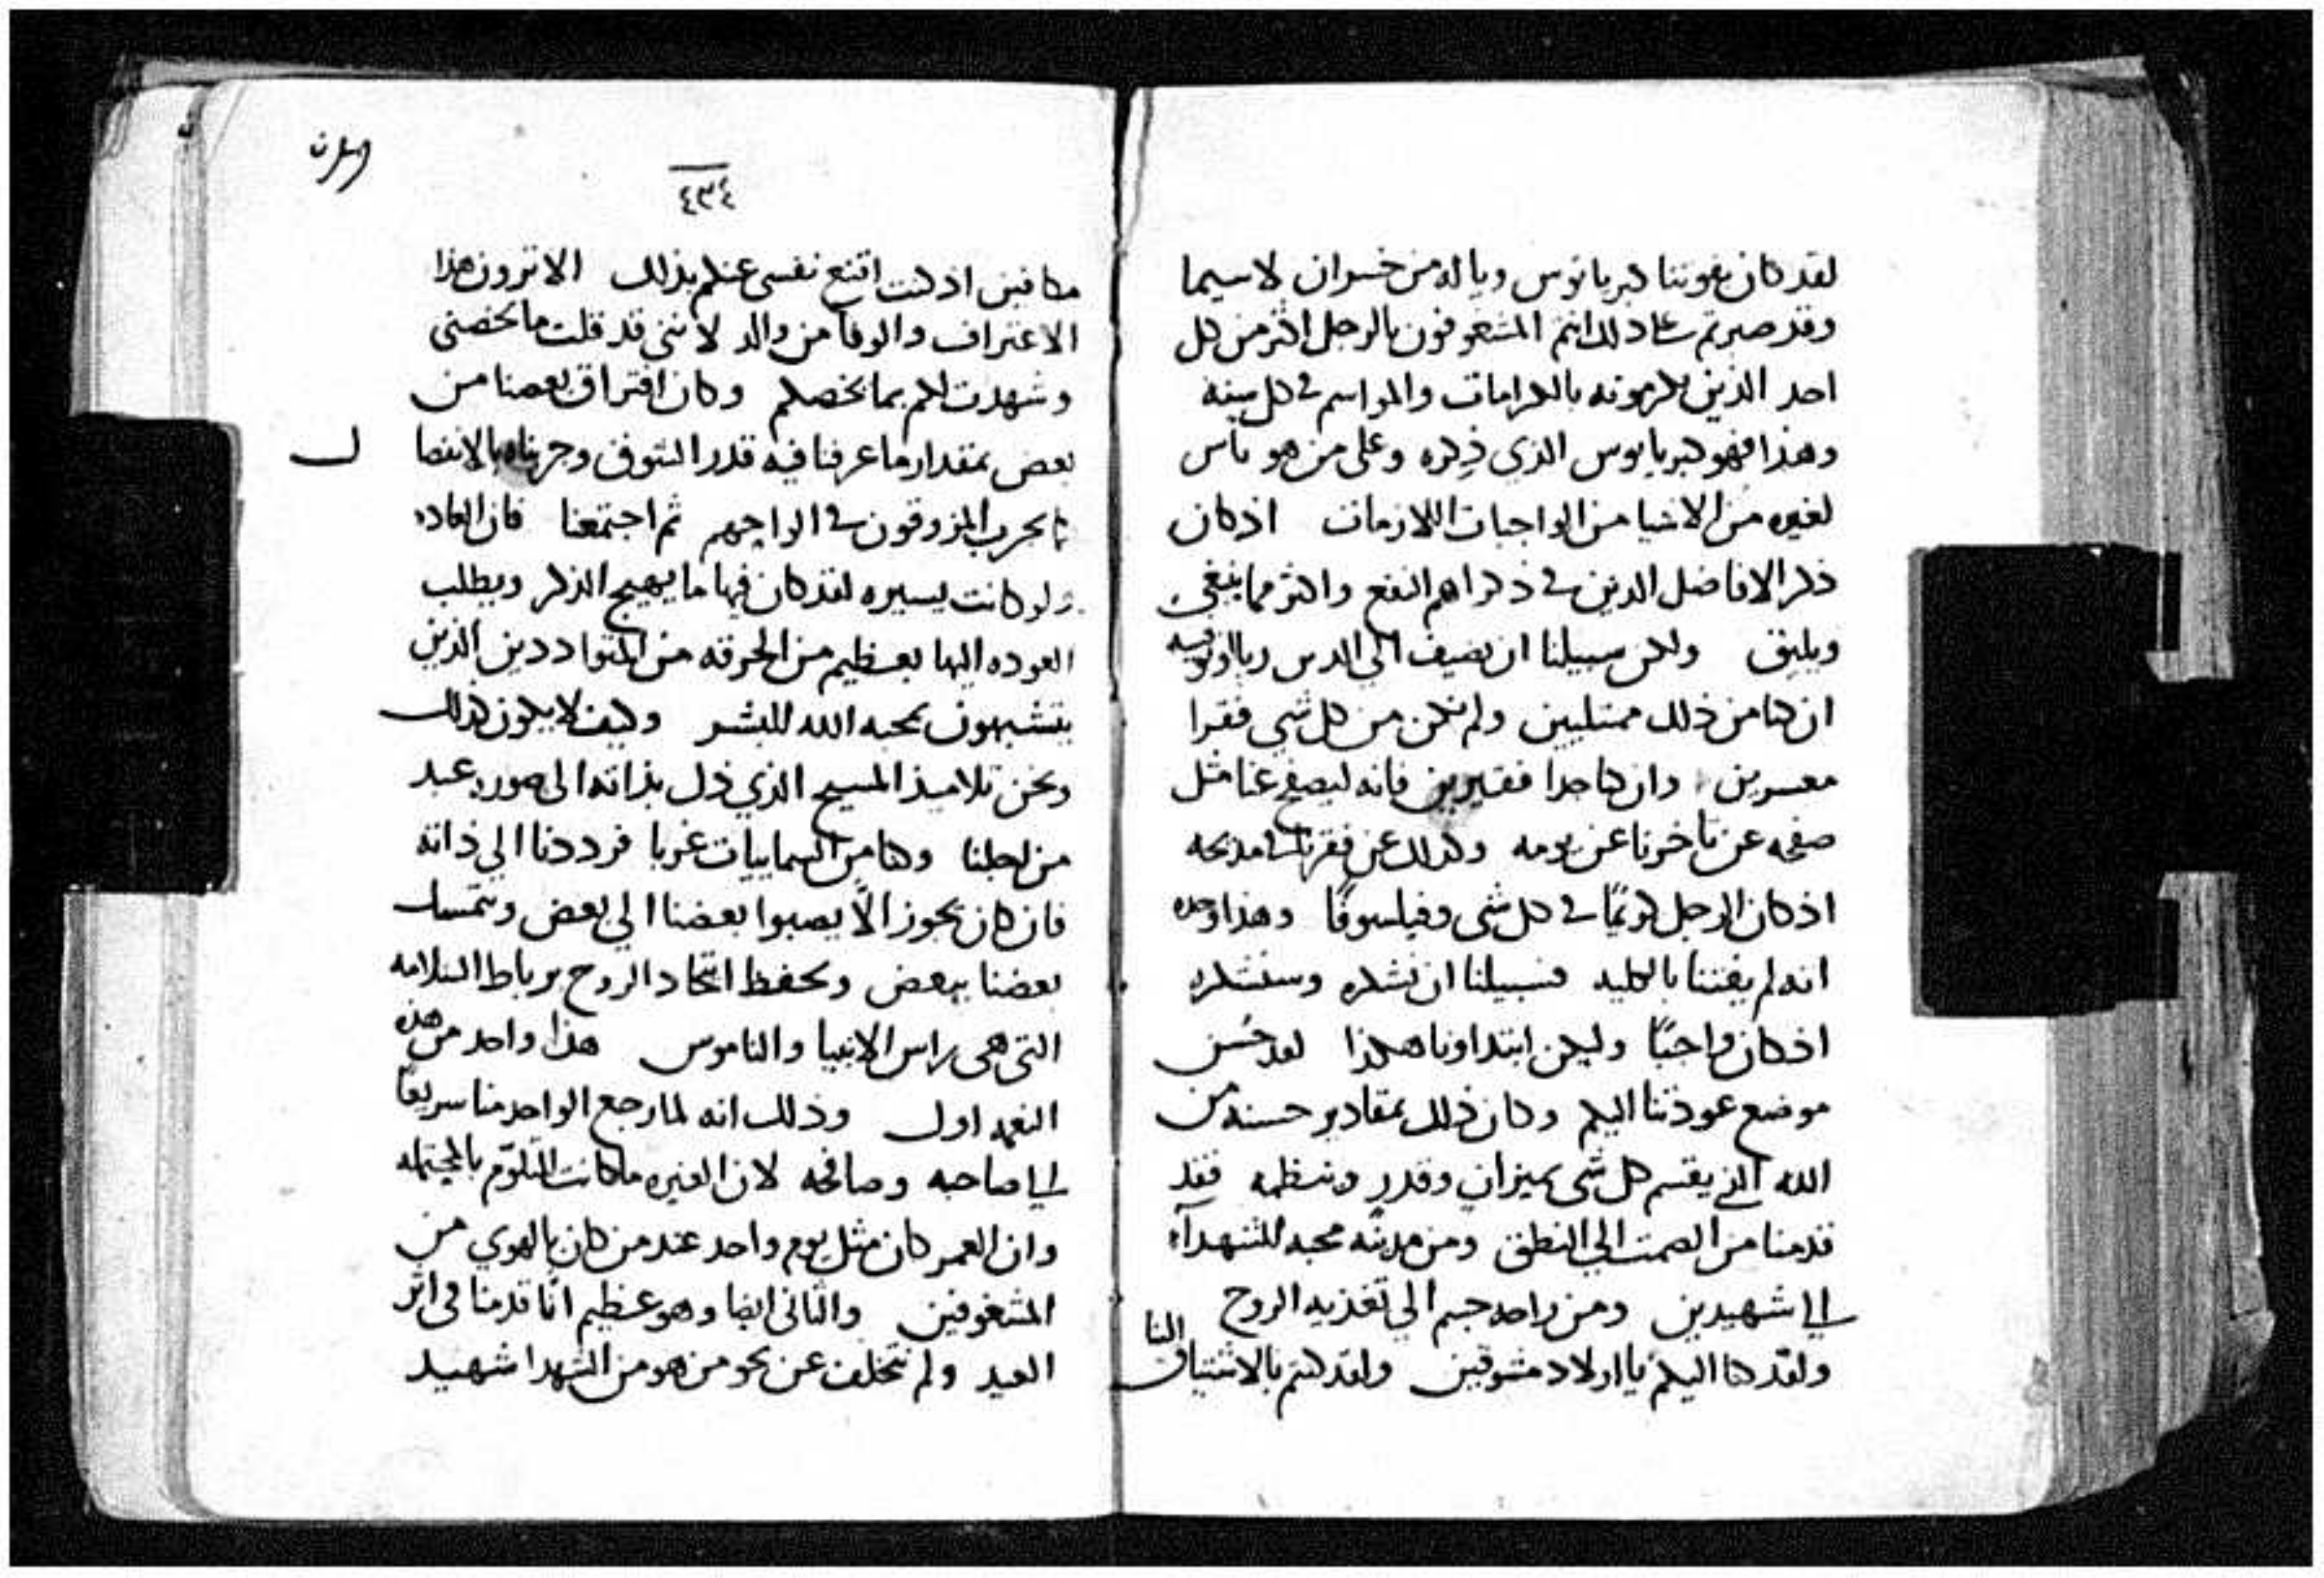 لقد كان يفوتنا كبريانوس وياله من خسران لاسيما
وقد صبرتم على ذلك انتم المشغوفون بالرجل اكثر من كل
احد الذين يكرمونه بالكرامات والمواسم في كل سنه
وهذا فهو كبريانوس الذي ذكره وعلى من هو ناس
لغيره من الاشيا من الواجبات اللازمات اذ كان
ذكر الافاضل الدين في ذكراهم النفع واكثر مما ينبغي
ويليق ولكن سبيلنا ان نضيف الي الدين
ان كنا من ذلك ممتليين ولم نكن من كل شي فقرا
معسرين وان كنا جدا فقيرين فانه ليصفح عنا مثل
صفحه عن تاخرنا عن يومه وكذلك عن فقرنا في مديحه
اذ كان الرجل كريمًا في كل شي وفيلسوفًا وهذا وحده
انه لم يفتنا بالكليه فسبيلنا ان نشكره وسنشكره
اذ كان واجبًا وليكن ابتداونا هكذا لقد حسن
موضع عودتنا اليكم وكان ذلك بمقادير حسنه من
الله الذي يقسم كل شي بميزان وقدر وينظمه فقد
قدمنا من الصمت الي النطق ومن مدينه محبه للشهدآء
الي شهيدين ومن راحه جسم الي تغذيه الروح
ولقد كنا اليكم يا اولاد مشوقين ولقد كنتم بالاشتياق الينا
٤٣٤
مكافين اذ كنت اقنع نفسي عنكم بذلك الا ترون هذا
الاعتراف والوفا من والد لانني قد قلت ما يخصني
وشهدت لكم بما يخصكم وكان افتراق بعضنا من
بعض بمقدار ما عرفنا فيه قدر التشوق وجربناه بالانفصا
ل
كما يجرب المزوقون في الواحهم ثم اجتمعنا فان العاده
ولو كانت يسيره لقد كان فيها ما يهيج الذكر ويطلب
العوده اليها بعظيم من الحرقه من المتواددين الذين
يتشبهون بمحبه الله للبشر وكيف لا يكون كذلك
ونحن تلاميذ المسيح الذي نزل بذاته الى صورة عبد
من اجلنا وكنا من السماييات غربا فرددنا الي ذاته
فان كان يجوز الّا يصبوا بعضنا الي بعض ويتمسك
بعضنا ببعض ويحفظ اتحاد الروح برباط السلامه
التي هي راس الانبيا والناموس هذا واحد من هذه
النعمه اول وذلك انه لما رجع الواحد منا سريعًا
الي صاحبه وصافحه لان الغيره ما كانت المتلوّم بالمحتمله
وان العمر كان مثل يوم واحد عند من كان بالهوي من
المشغوفين والثاني ايضا وهو عظيم انّا قدمنا في اثر
العيد ولم نتخلف عن نحو من هو من الشهدا شهيد